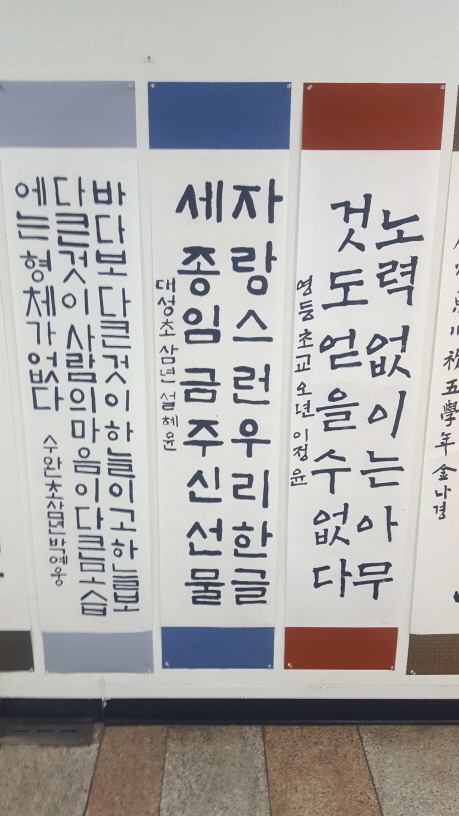 바다보다큰것이하늘이고하늘보
다큰것이사람의마음이다큰모습
에는형체가없다
수완초삼년박예웅
자랑스런우리한글
세종임금주신선물
대성초삼년설혜윤
노력없이는아무
것도얻을수없다
영등초교오년이정윤
五學年金나경